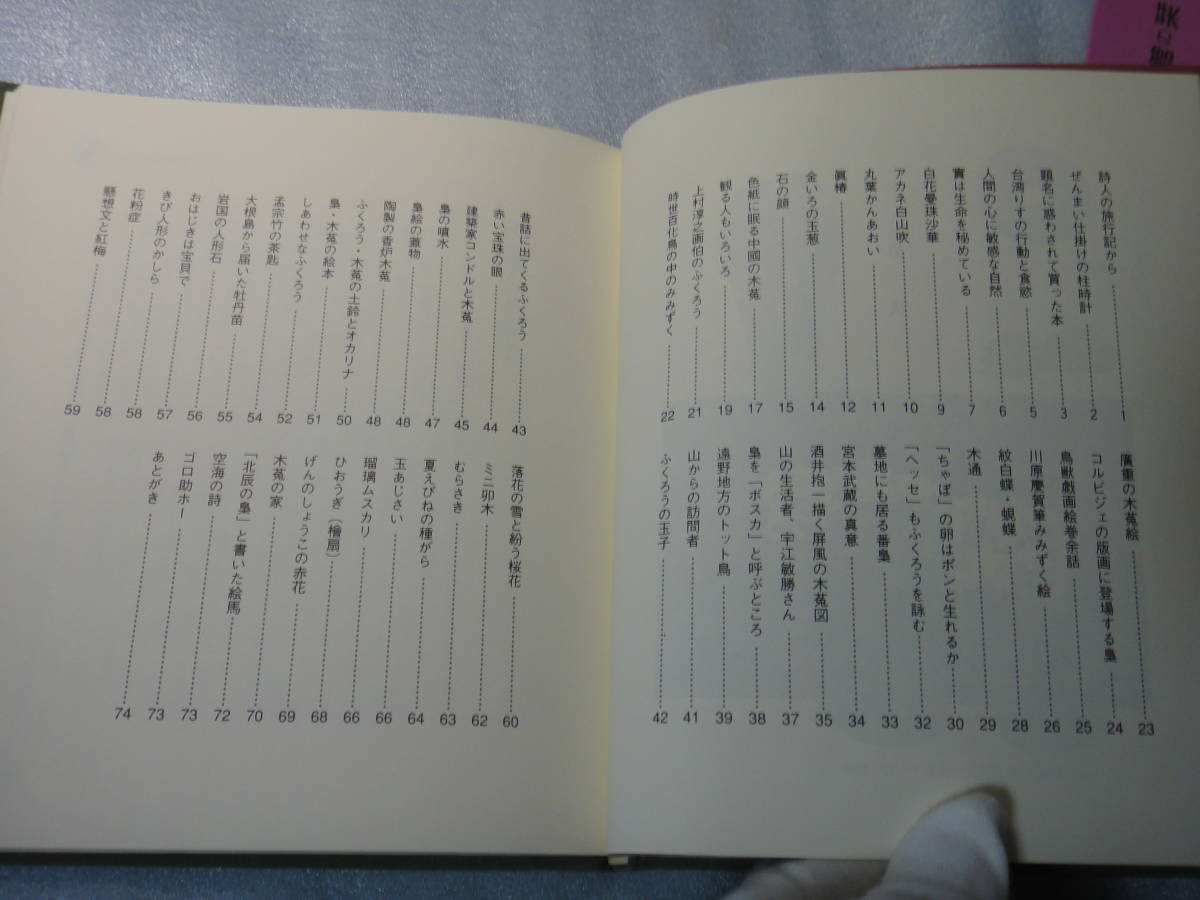 詩人の旅行記から 1
ぜんまい仕掛けの柱時計 2
題名に惑わされて買った本 3
台湾りすの行動と食慾 5
人間の心に敏感な自然 6
實は生命を秘めている 7
白花曼珠沙華 9
アカネネ白山吹 10
丸葉かんあおい 11
眞椿 12
金いろの玉葱 14
石の顔 15
色紙に眠る中國の木菟 17
観る人もいろいろ 19
上村淳之画伯のふくろう 21
時世百化鳥の中のみみずく 22
廣重の木菟絵 23
コルビジェの版画に登場する梟 24
鳥獣戯画絵巻余話 25
川原慶賀筆みみずく絵 26
紋白蝶・蜆蝶 28
木通 29
「ちゃぼ」の卵はポンと生れるか 30
「ヘッセ」もふくろうを詠む 32
墓地にも居る番梟 33
宮本武蔵の真意 34
酒井抱一描く屏風の木菟図 35
山の生活者、宇江敏勝さん 37
梟を「ボスカ」と呼ぶところ 38
遠野地方のトット鳥 39
山からの訪問者 41
ふくろうの玉子 42
昔話に出てくるふくろう 43
赤い宝珠の眼 44
建築家コンドルと木菟 45
梟の噴水 47
梟絵の蓋物 48
陶製の香炉木菟 48
ふくろう・木菟の土鈴とオカリナ 50
梟・木菟の絵本 51
しあわせなふくろう 52
孟宗竹の茶匙 54
大根島から届いた牡丹苗 55
岩国の人形石 56
おはじきは宝貝で 57
きび人形のかしら 58
花粉症 58
懸想文と紅梅 59
落花の雪と紛う桜花 60
ミニ卯木 62
むらさき 63
夏えびねの種がら 64
玉あじさい 66
瑠璃ムスカリ 66
ひおうぎ（檜扇） 68
げんのしょうこの赤花 69
木菟の家 70
「北辰の梟」と書いた絵馬 72
空海の詩 73
ゴロ助ホー 73
あとがき 74